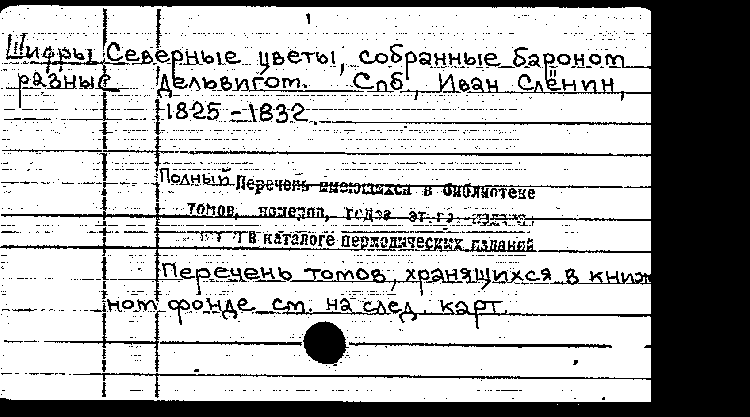 1
Шифры Северные цветы, собранные бароном
разные Дельвигом. Спб, Иван Слёнин,
1825-1832.
Полный Перечень имеющихся в библиотеке
томов, номеров, годов
в каталоге периодических изданий
Перечень томов, хранящихся в книж
ном фонде см. на след. карт.